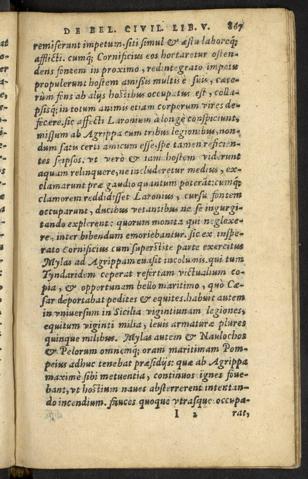 DE BEL. CIVIL. LIB. V. 867
remiserunt impetum. siti simul & æstu laboreq́;
afflicti. cumq; Cornificius eos hortaretur osten-
dens fontem in proximo, redintegrato impetu
propulerunt hostem amissis multis è suis, cæte-
rùm fons ab alijs hostibus occupatus est, colla-
psisq; in totum animis etiam corporum vires de-
fecere. sic affecti Laronium à longè conspiciunt,
missum ab Agrippa cum tribus legionibus, non-
dum satis certi amicum esse. spe tamen reficien-
tes seipsos, vt verò & iam hostem viderunt
aquam relinquere, ne includeretur medius, ex-
clamarunt præ gaudio quantum poterãt: cumq;
clamorem reddidisset Laronius, cursu fontem
occuparunt, ducibus vetantibus ne se ingurgi-
tando explerent: quorum monita qui neglexe-
re, inter bibendum emoriebantur. sic ex inspe-
rato Cornificius cum superstite parte exercitus
Mylas ad Agrippam euasit incolumis. qui tum
Tyndaridem ceperat refertam victualium co-
pia, & opportunam bello maritimo, quò Cæ-
sar deportabat pedites & equites. habuit autem
in vniuersum in Sicilia vigintiunam legiones,
equitum viginti milia, leuis armaturæ plures
quinque milibus. Mylas autem & Naulochos
& Pelorum omnemq; oram maritimam Pom-
peius adhuc tenebat præsidijs: quæ ab Agrippa
maximè sibi metuentia, continuos ignes foue-
bant, vt hostium naues absterrerent intentan-
do incendium. fauces quoque vtrasque occupa-
I 2 rat,